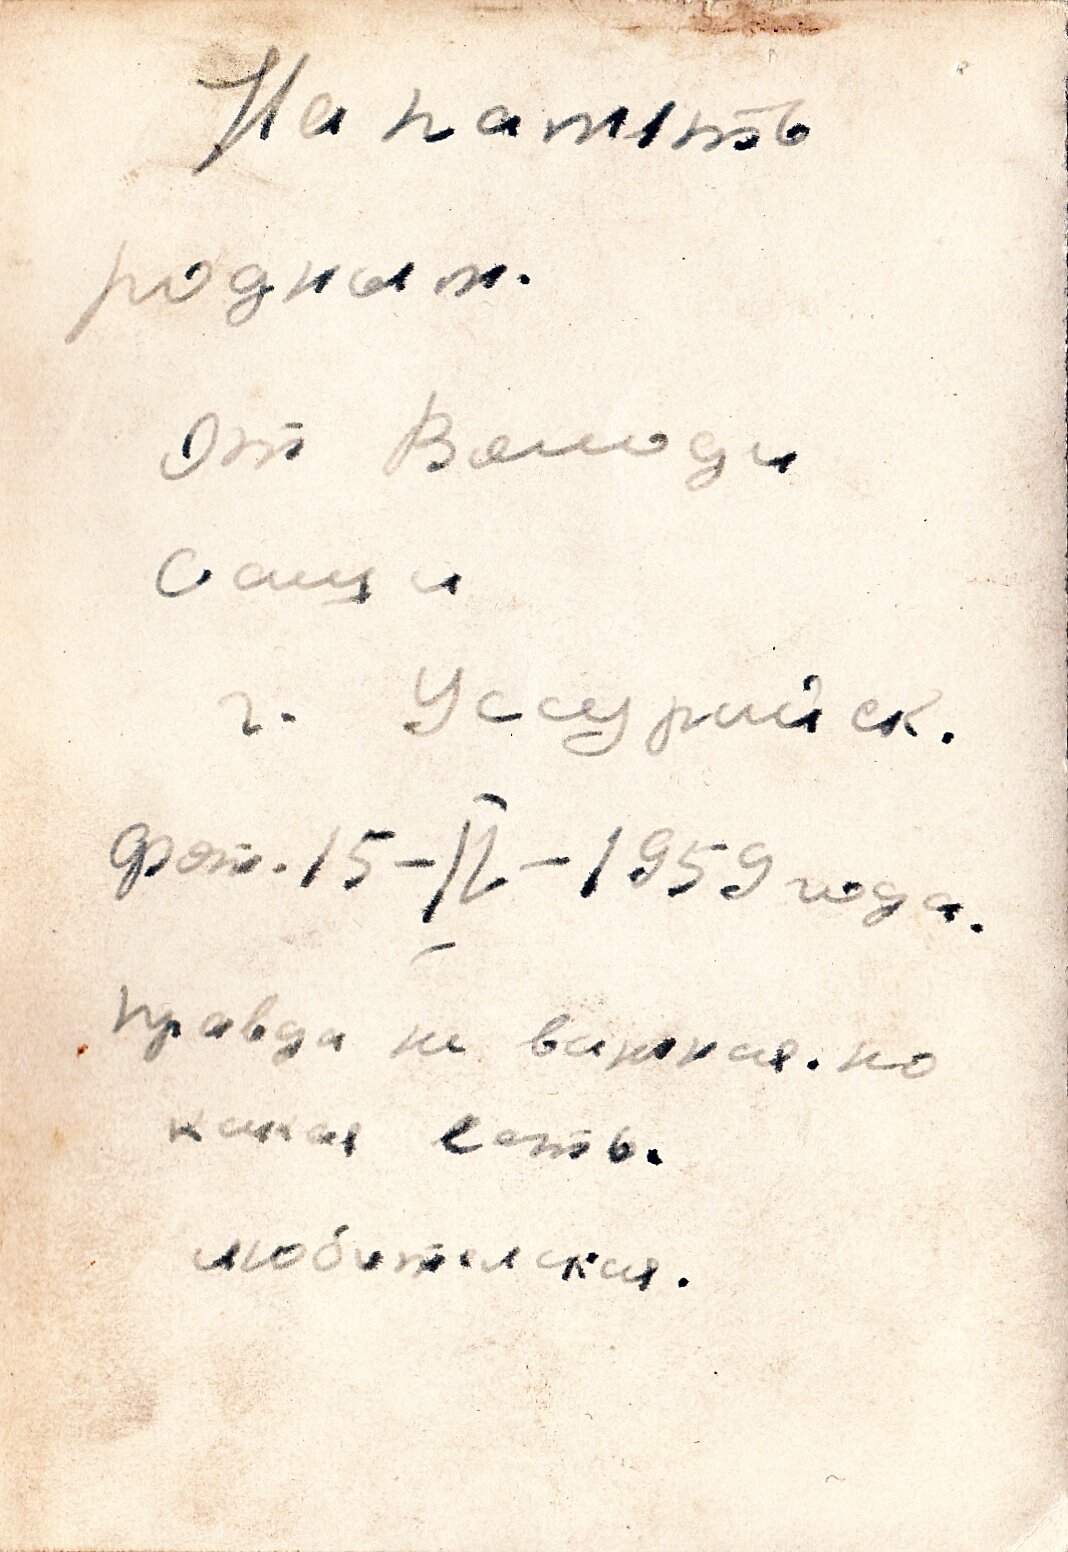 На память
родным.
От Володи
Саши
г. Уссурийск.
фот. 15-II-1959 года.
правда не важная. но
какая есть.
любителская.